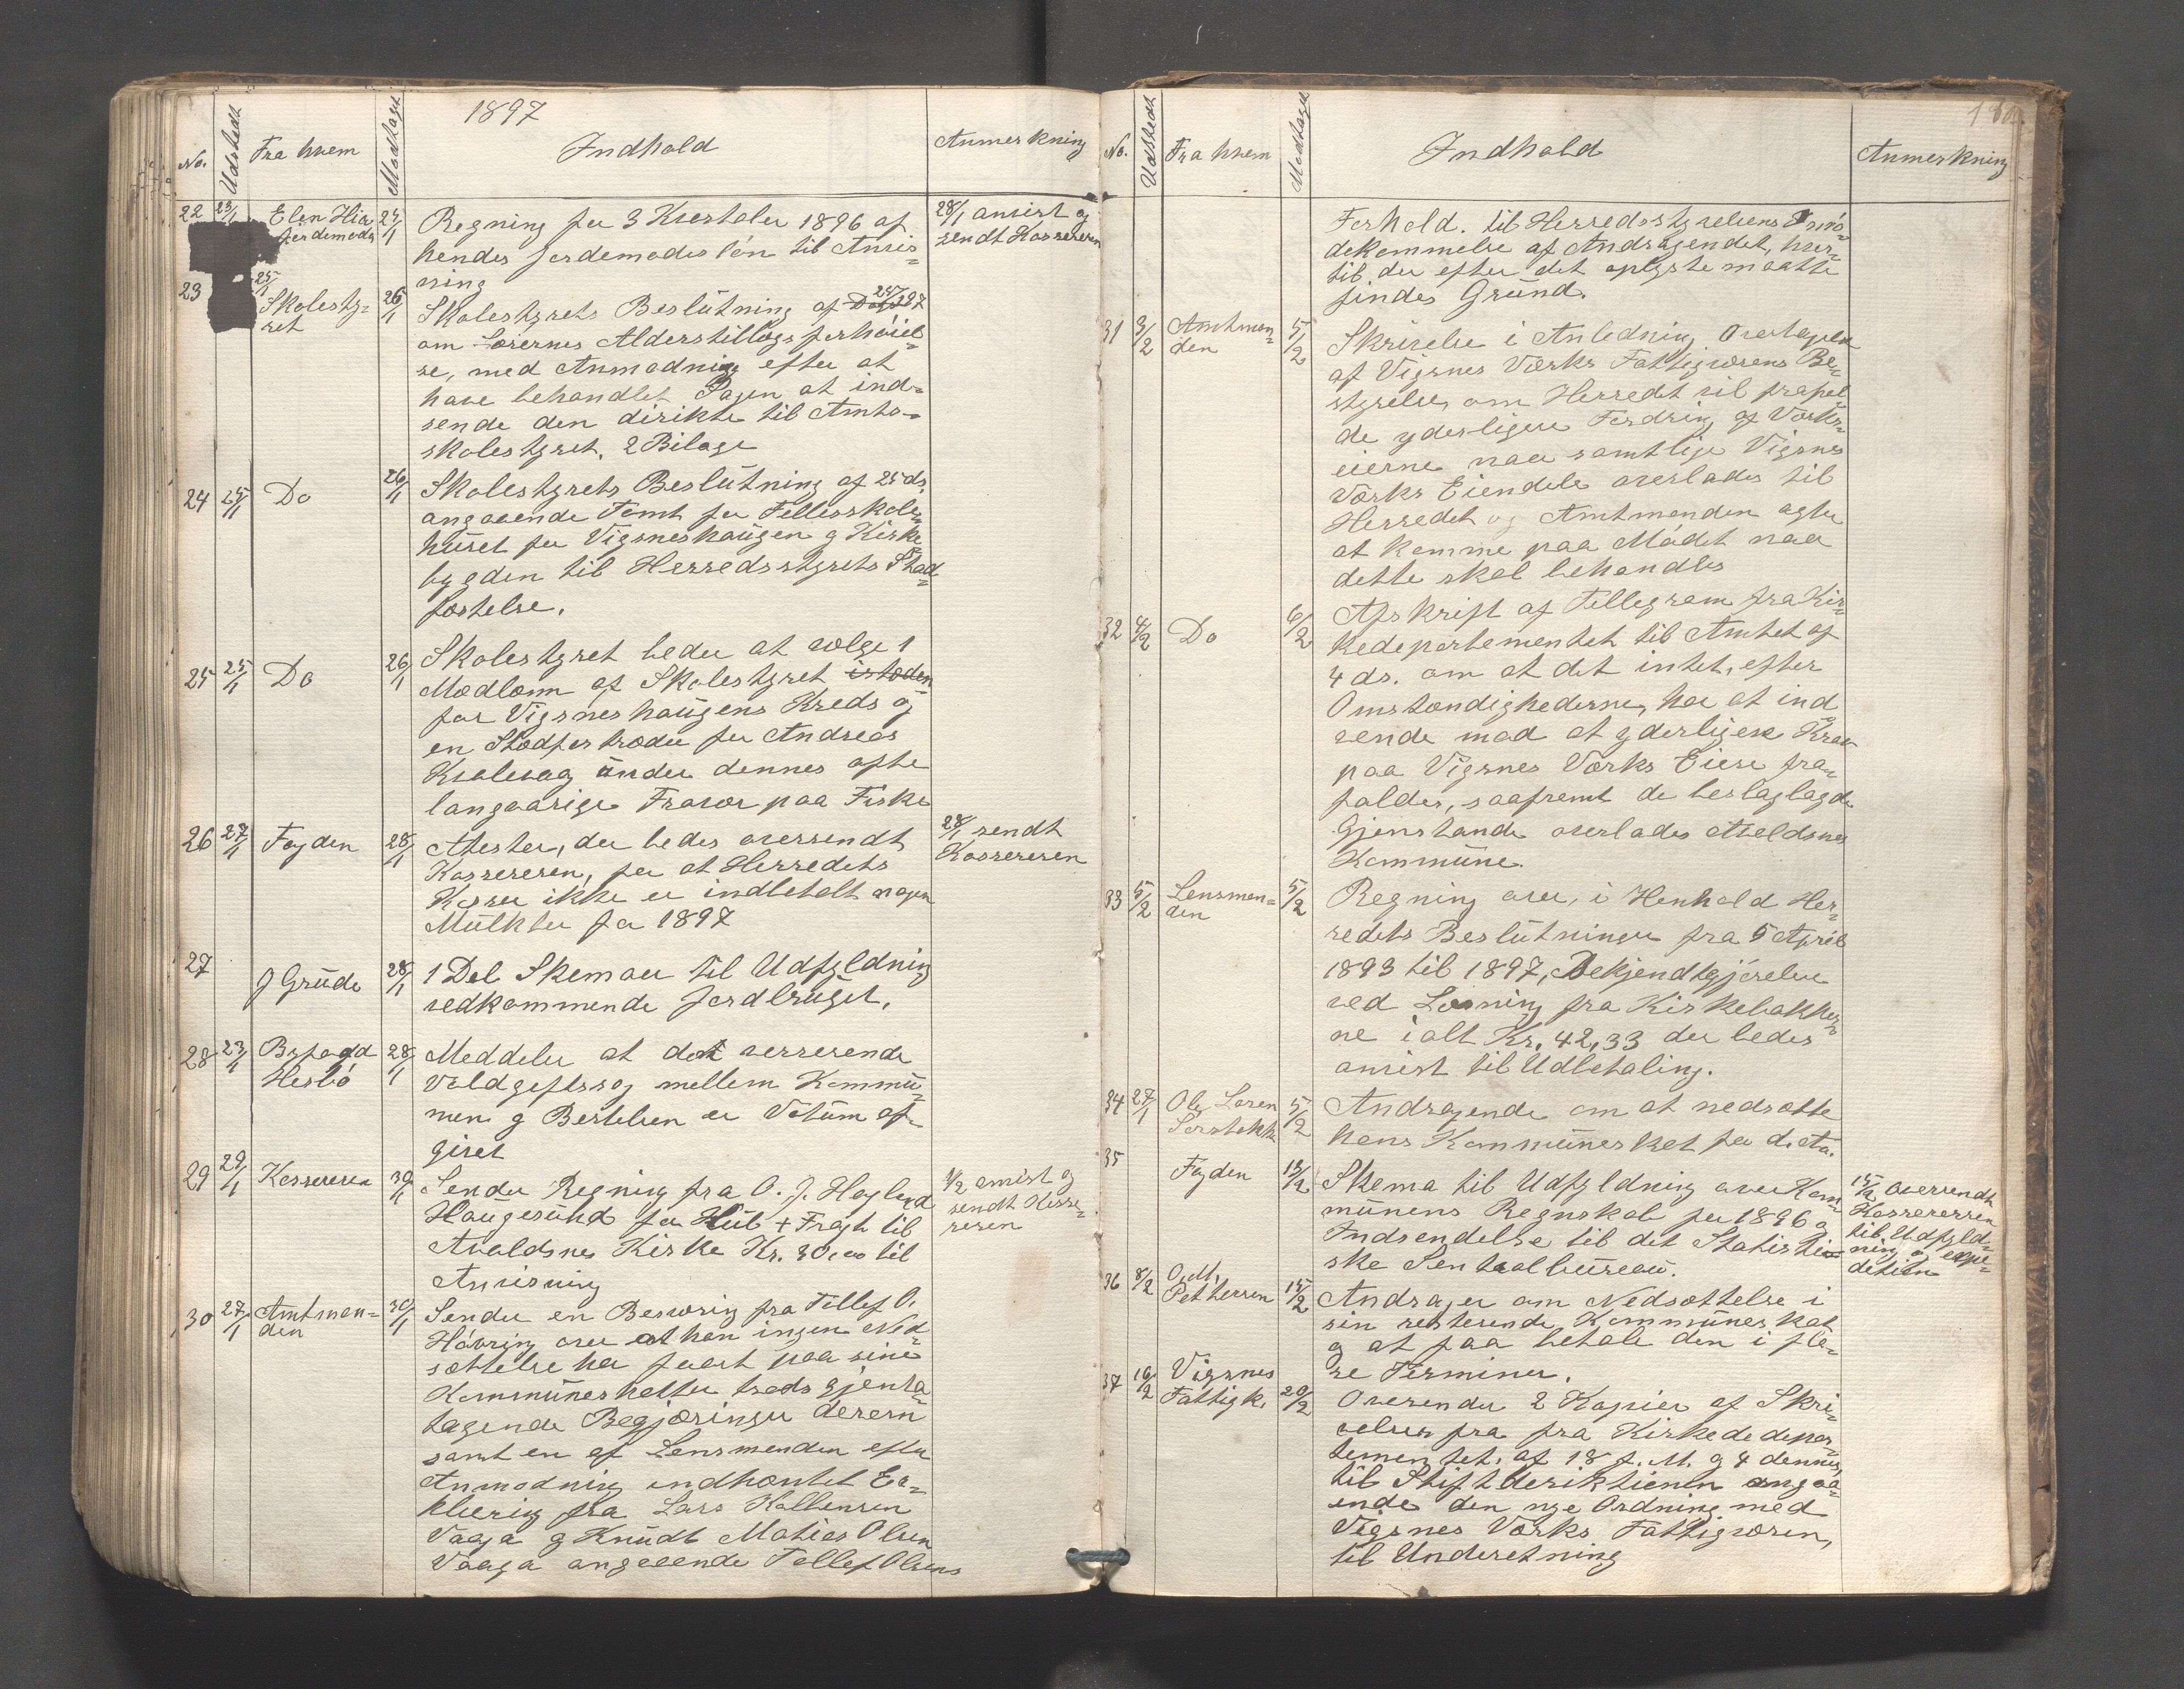 1897
No. Udstedt Fra hvem Modtaget Indhold Anmerkning
22 23/1 Elen Hia 27/1 Regning for 3 Kvartaler 1896 af 28/1 anvist og
jordemoder hendes jordemoderløn til Anvis= sendt Kassereren
ning
23 25/1 Skolesty= 26/1 Skolestyrets Beslutning af 25/1 97
ret om Lærernes Alderstillægs forhøiel=
se, med Anmodning efter at
have behandlet Sagen at ind=
sende den dirikte til Amts=
skolestyret. 2 Bilage
24 25/1 Do 26/1 Skolestyrets Beslutning af 25 ds.
angaaende Tomt for Fellesskole=
huset for Vigsneshaugen og Kirke
bygden til Herredsstyrets Stad=
fæstelse.
25 25/1 Do 26/1 Skolestyret beder at vælge 1
Medlem af Skolestyret isteden
for Vigsneshaugens Kreds og
en Stedfortræder for Andreas
Kvalevag under dennes ofte
langvarige Fravær paa Fiske
26 27/1 Fogden 28/1 Atester, der bedes oversendt 28/1 sendt
Kassereren, for at Herredets Kassereren
Kasse ikke er indbetalt nogen
Mulkter for 1897
27 J Grude 28/1 1 Del Skemaer til Udfyldning
vedkommende jordbruget.
28 23/1 Byfogd 28/1 Meddeler at det verserende
Hesbø Voldgiftssag mellem Kommu=
nen og Bertelsen er Votum af=
givet
29 29/1 Kassereren 30/1 Sender Regning fra O. J. Hagland 1/2 anvist og
Haugesund for Hub + Fragt til sendt Kasse=
Avaldsnes Kirke Kr. 30,00 til reren
Anvisning
30 27/1 Amtman= 30/1 Sender en Besværing fra Tollef O.
den Høvring over at han ingen Ned=
sættelse har faaet paa sine
Kommuneskatter trods gjenta=
tagende Begjæringer derom
samt en af Lensmanden efter
Anmodning indhentet Er=
klæring fra Lars Kolbensen
Vaaga og Knudt Matias Olsen
Vaaga angaaende Tollef Olsens
No. Udstedt Fra hvem Modtaget Indhold Anmerkning
Forhold. til Herredsstyrelsens Imø=
dekommelse af Andragendet, hvor=
til der efter det oplyste maatte
findes Grund.
31 3/2 Amtman= 5/2 Skrivelse i Anledning Overtagelse
den af Vigsnes Værks Fattigvæsens Be=
styrelse, om Herredet vil frafal=
de yderligere Fordring af Værks=
eierne naar samtlige Vigsnes
Værks Eiendele overlades til
Herredet og Amtmanden agter
at komme paa Mødet naar
dette skal behandles
32 4/2 Do 6/2 Afskrift af Tellegram fra Kir=
kedepartementet til Amtet af
4 ds. om at det intet, efter
Omstændighederne, har at ind
vende mod at yderligere Krav
paa Vigsnes Værks Eiere fra=
faldes, saafremt de beslaglagde
Gjenstande overlades Avaldsnes
Kommune.
33 5/2 Lensman= 5/2 Regning over, i Henhold Her=
den redets Beslutninger fra 5 April
1893 til 1897, Bekjendtgjørelser
ved Læsning fra Kirkebakker=
ne ialt Kr. 42,33 der bedes
anvist til Udbetaling.
34 27/1 Ole Larsen 5/2 Andragende om at nedsætte
hans Kommuneskat for d. Aa.
35 Fogden 13/2 Skema til Udfyldning over Kom= 15/2 oversendt
munens Regnskab for 1896 og Kassereren
Indsendelse til det Statisti= til Udfyld=
ske Sentralbureau. ning og expe=
dition
36 8/2 O. M. 15/2 Andrager om Nedsættelse i
Pettersen sin resterende Kommuneskat
og at faa betale den i fle=
re Terminer.
37 16/2 Vigsnes 20/2 Oversender 2 Kopier af Skri=
Fattigk. velser fra fra Kirkededepar=
tementet. af 18 f. M. og 4 dennes,
til Stiftderiktionen angaa=
ende den nye Ordning med
Vigsnes Værks Fattigvæsen,
til Underetning